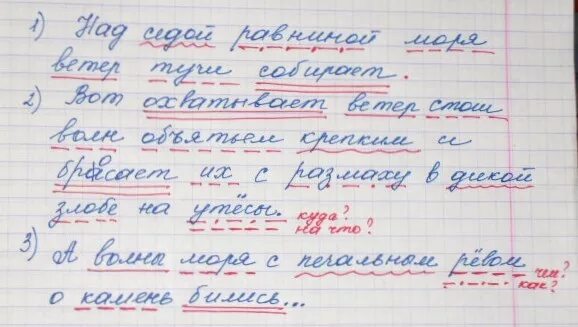 1) Над седой равниной моря
ветер тучи собирает.
2) Вот охватывает ветер стаи
волн объятьем крепким и
бросает их с размаху в дикой
злобе на утёсы. куда?
на что?
3) А волны моря с печальным рёвом чем?
как?
о камень бились...